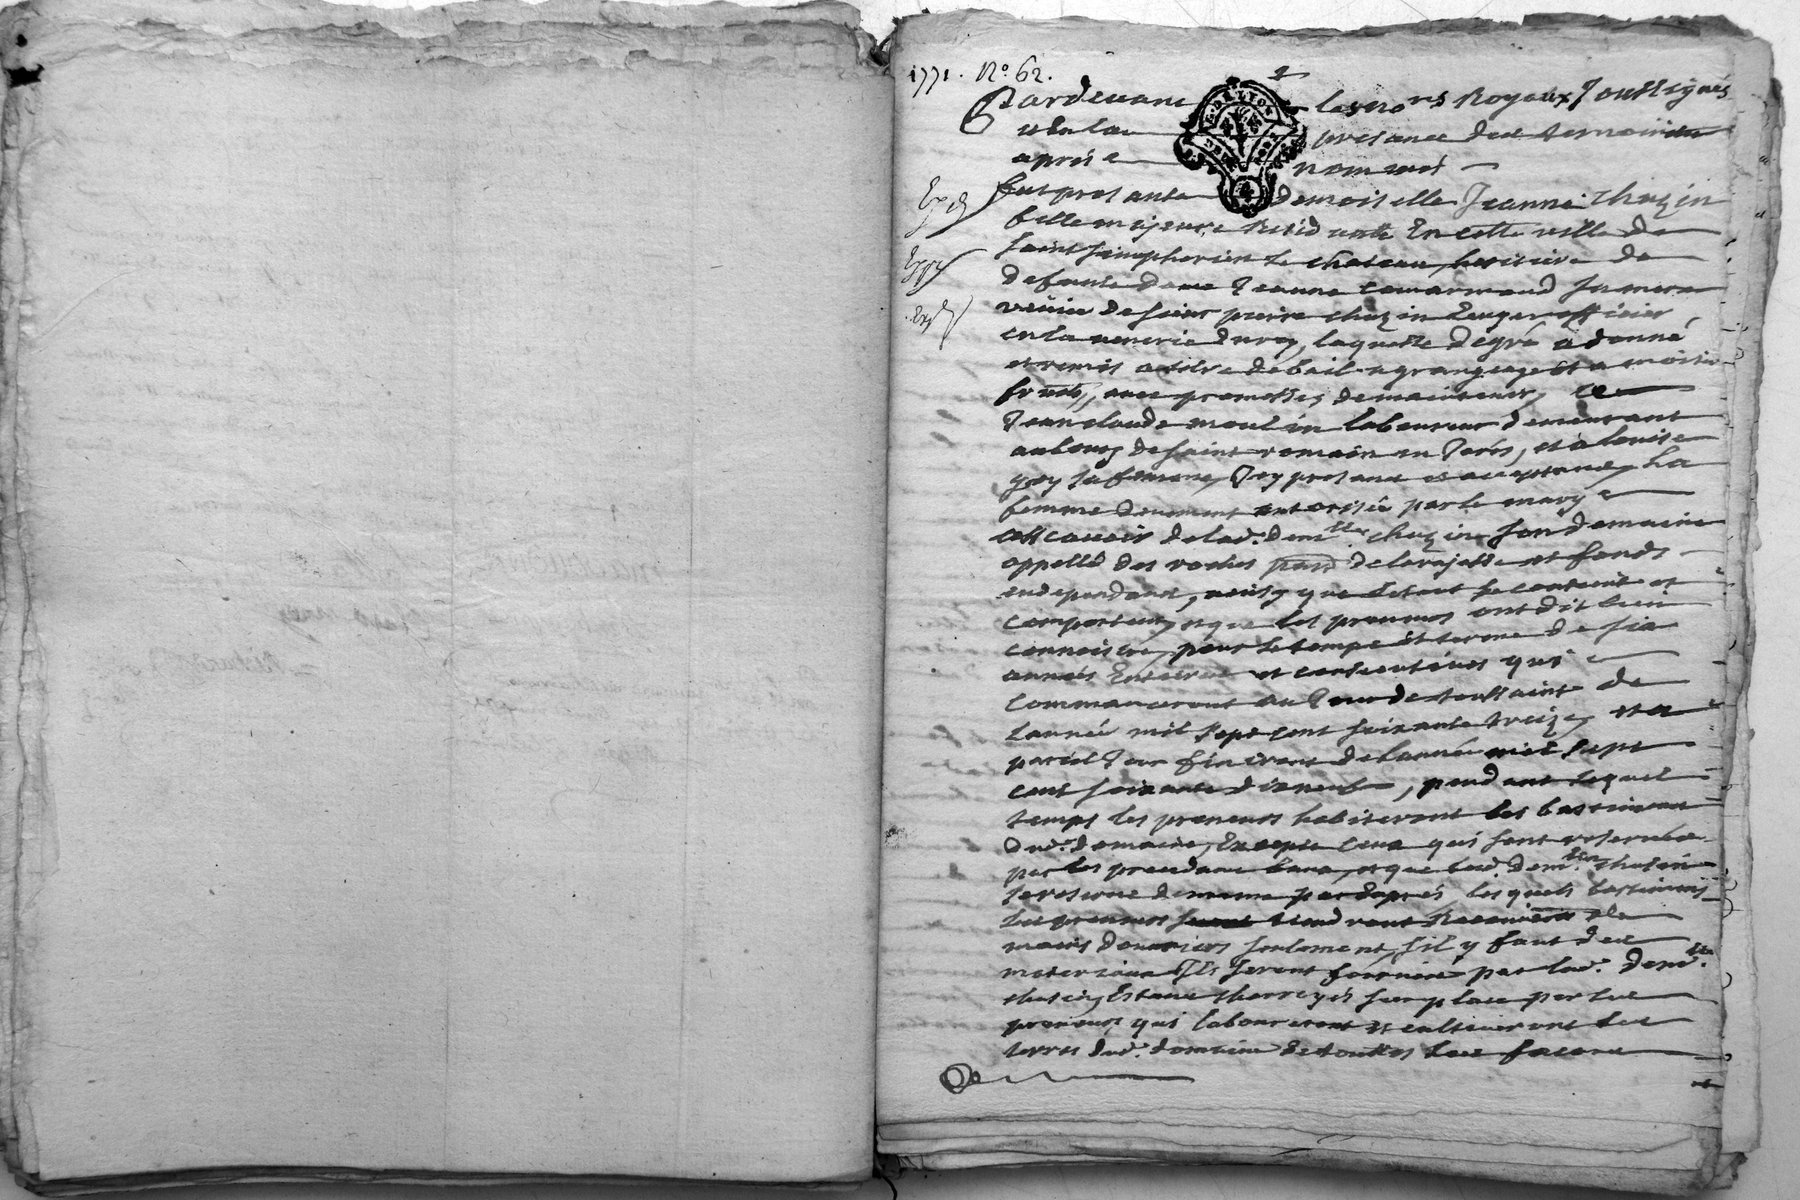 1771. No. 62.
Pardevant les nores Royaux Soussignés
et En la presance des temoins
apres nommés
fut presante demoiselle Jeanne Chazin
fille majeure Residante En cette ville de
saint simphorien le chateau, heritiere de
defunte dame Jeanne samere
veuve de sieur pierre chazin officier
en la venerie du roy, laquelle de gré a donné
et remis a titre de bail a grangeage et a moitié
fruits, avec promesse de maintenir, a
Jean claude moulin laboureur demeurant
au bourg de saint romain en Jarés, et a Louise
sa femme, Icy presans et acceptans, La
femme deuement autorisée par le mary
assavoir de lad. demlle chazin son domaine
appellé des roches de la rajasse et fonds
en dependant, ainsy que le tout se contient et
comporte, et que les preneurs ont dit bien
connoistre, pour le temps et terme de six
années Entieres et consecutives qui
commanceront au Jour de toussaint de
L'année mil sept cent soixante treize, et a
pareil Jour finiront de l'année mil sept
cent soixante dixneuf, pendant lequel
temps les preneurs habiteront les bastimens
dud. domaine, Excepté ceux qui sont reservés
par les precedans baux, et que lad. demlle chazin
se reserve de meme par d'aprés, lesquels bastimens
les preneurs tiendront de
mains d'ouvriers seulement, s'il y faut des
materiaux Ils seront fournis par lad. demlle
chazin, Estans sur place par les
preneurs, qui laboureront et cultiveront les
terres dud. domaine de touttes Leurs facons
et